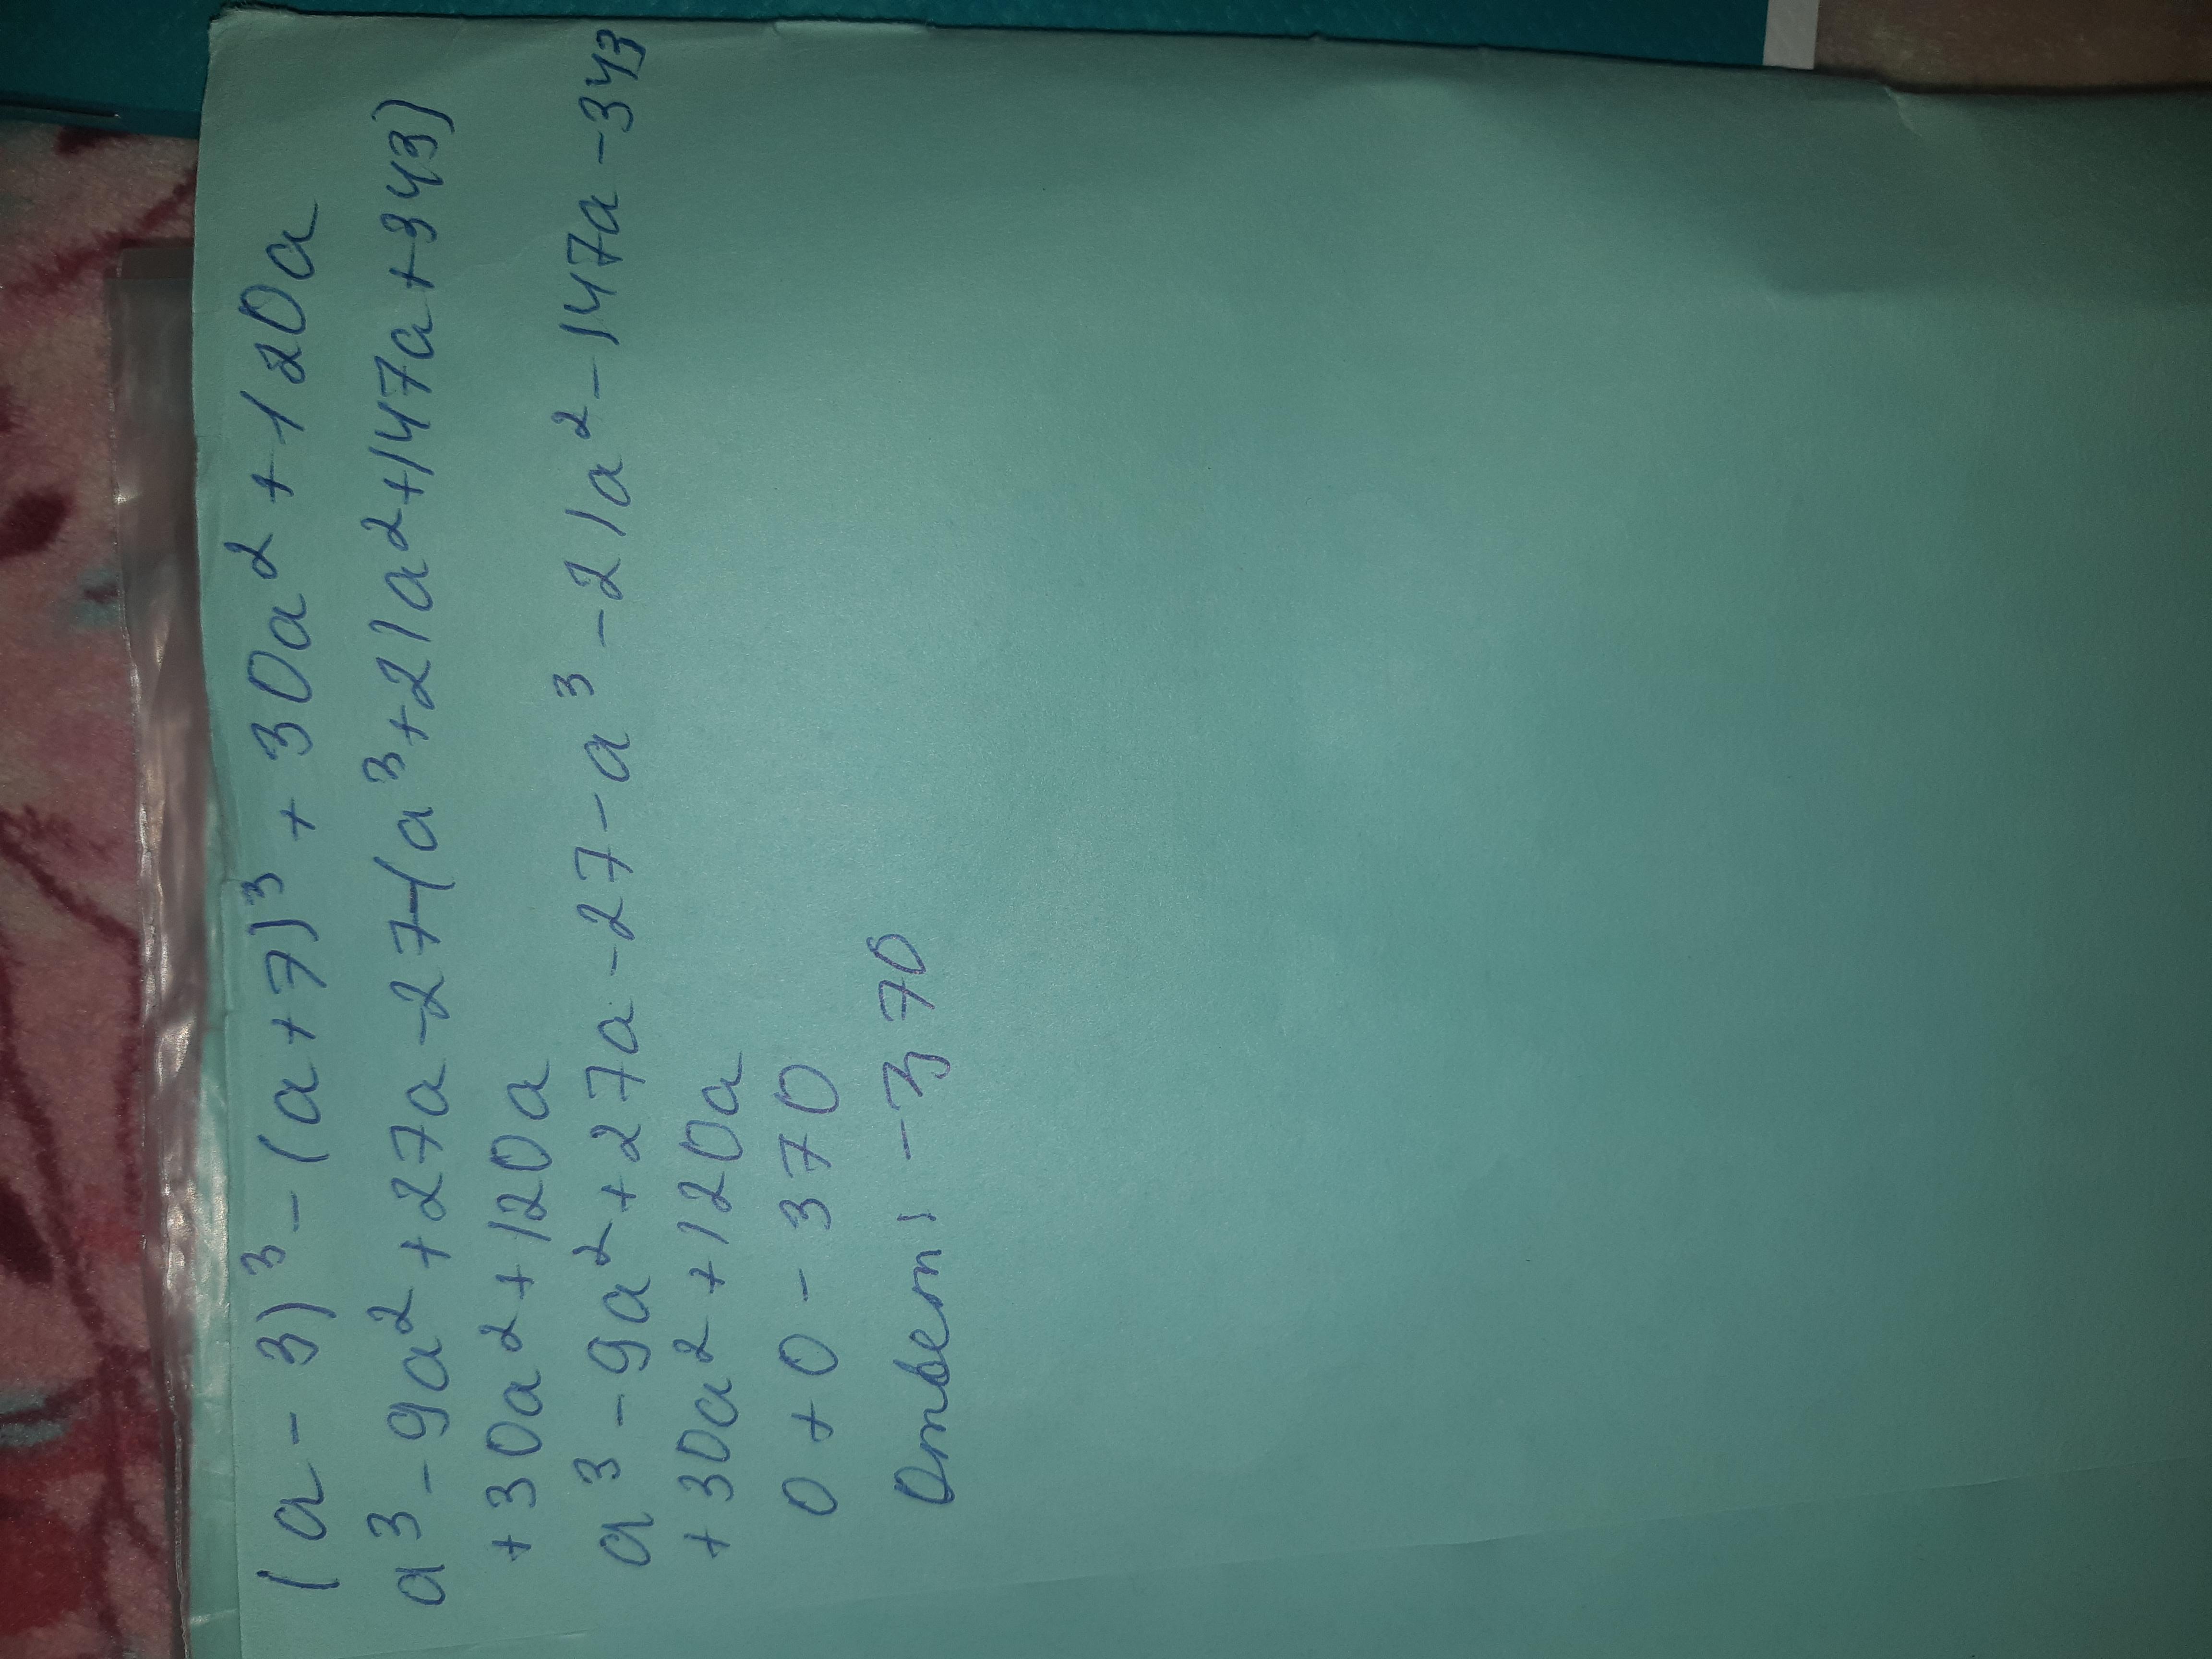 (a - 3)³ - (a + 7)³ + 30a² + 120a
a³ - 9a² + 27a - 27 - (a³ + 21a² + 147a + 343)
+ 30a² + 120a
a³ - 9a² + 27a - 27 - a³ - 21a² - 147a - 343
+ 30a² + 120a
0 + 0 - 370
Ответ: -370